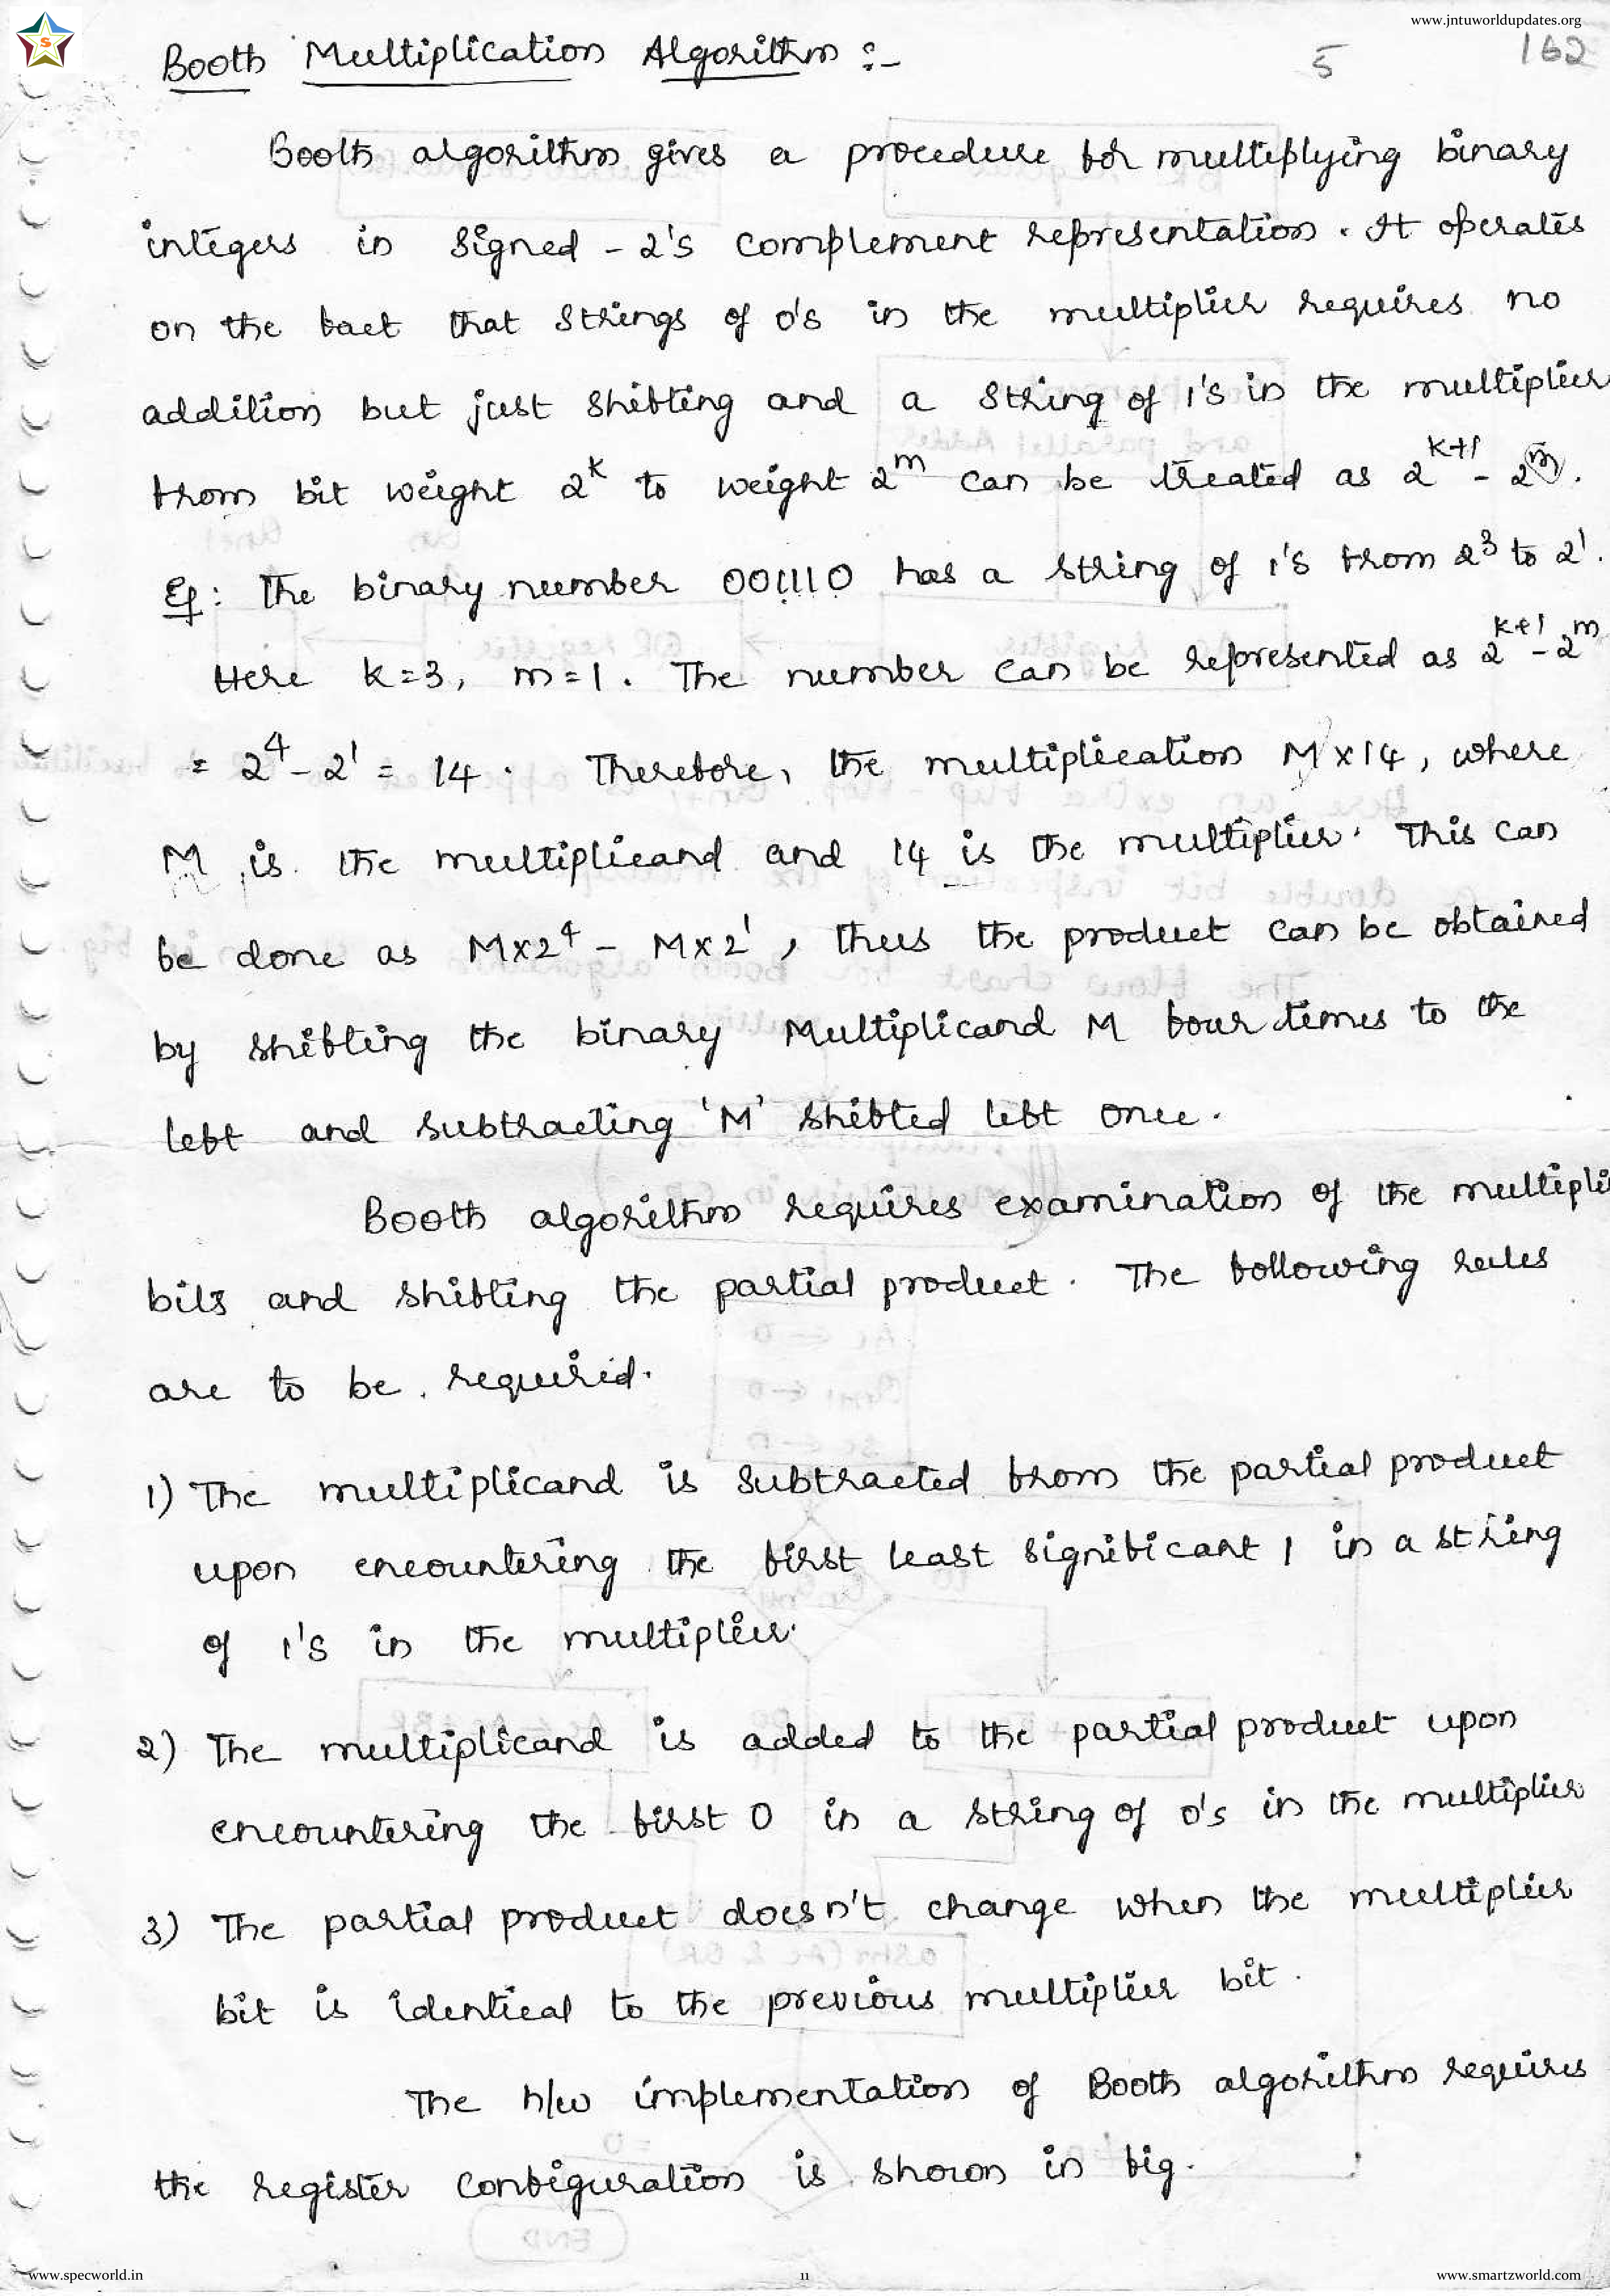 www.jntuworldupdates.org
5 162
Booth Multiplication Algorithm :-
Booth algorithm gives a procedure for multiplying binary
integers in signed - 2's complement representation. It operates
on the fact that strings of 0's in the multiplier requires no
addition but just shifting and a string of 1's in the multiplier
from bit weight 2^k to weight 2^m can be treated as 2^k+1 - 2^m.
Eg: The binary number 001110 has a string of 1's from 2^3 to 2^1.
Here k=3, m=1. The number can be represented as 2^k+1 - 2^m
= 2^4 - 2^1 = 14. Therefore, the multiplication M x 14, where
M is the multiplicand and 14 is the multiplier. This can
be done as Mx2^4 - Mx2^1, thus the product can be obtained
by shifting the binary Multiplicand M four times to the
left and subtracting 'M' shifted left once.
Booth algorithm requires examination of the multipli
bits and shifting the partial product. The following rules
are to be required.
1) The multiplicand is subtracted from the partial product
upon encountering the first least significant 1 in a string
of 1's in the multiplier.
2) The multiplicand is added to the partial product upon
encountering the first 0 in a string of 0's in the multiplier
3) The partial product doesn't change when the multiplier
bit is identical to the previous multiplier bit.
The h/w implementation of Booth algorithm requires
the register configuration is shown in fig.
www.specworld.in 11 www.smartzworld.com